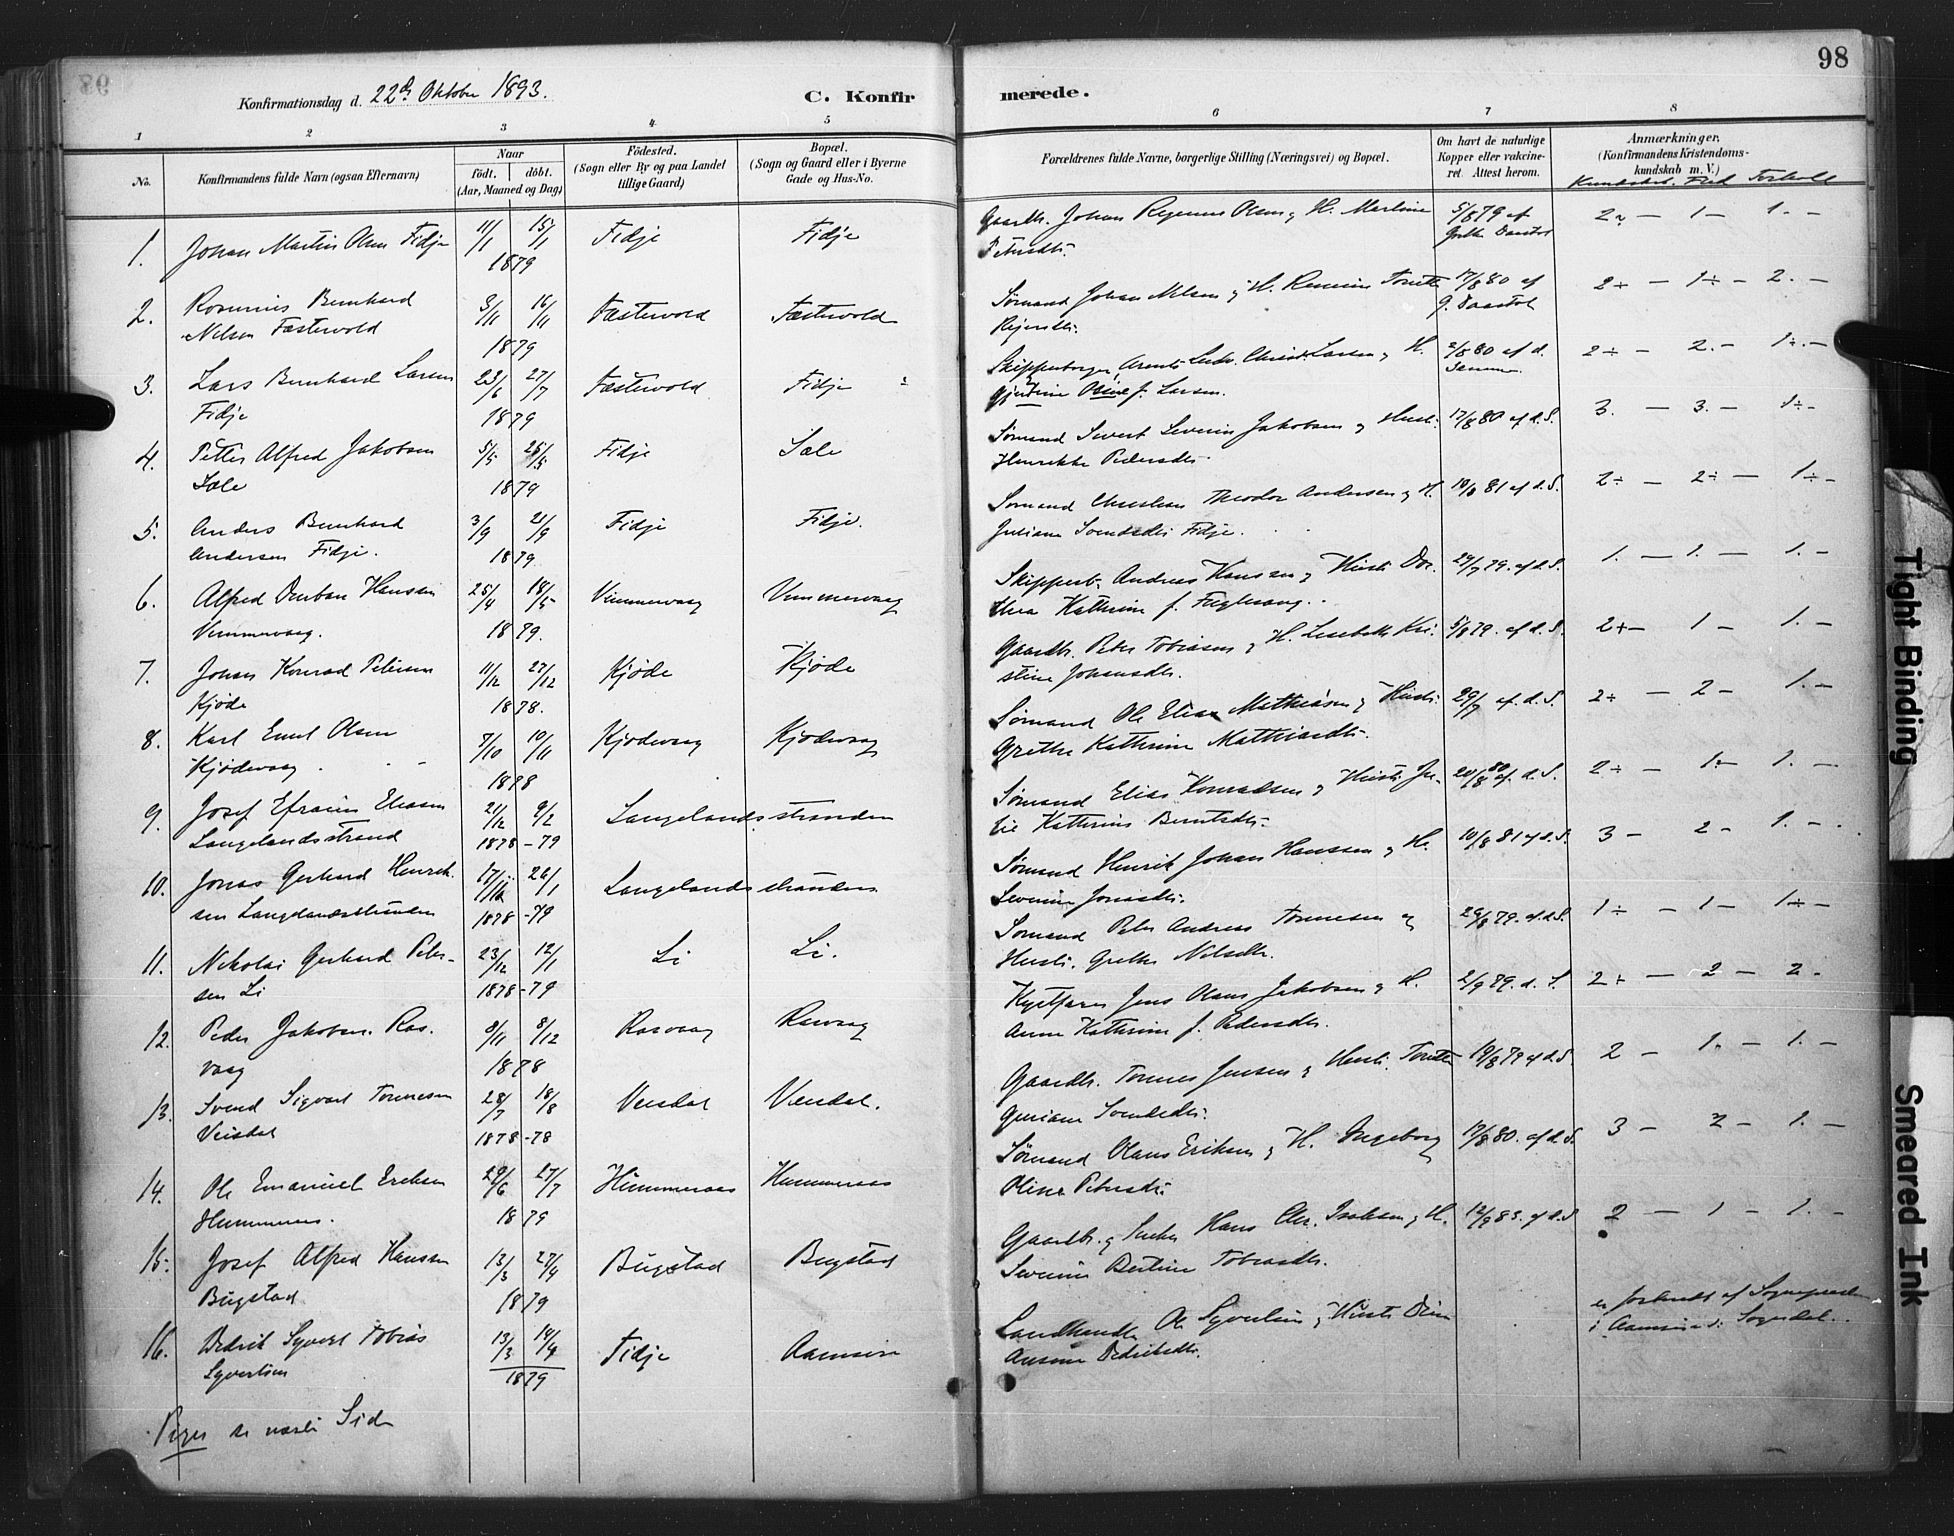 98
Konfirmationsdag d. 22de Oktober 1893.
C. Konfirmerede.
1 2 3 4 5 6 7 8
No.
Konfirmandens fulde Navn (ogsaa Efternavn)
Naar
født. døbt.
(Aar, Maaned og Dag)
Fødested.
(Sogn eller By og paa Landet
tillige Gaard)
Bopæl.
(Sogn og Gaard eller i Byerne
Gade og Hus-No.
Forældrenes fulde Navne, borgerlige Stilling (Næringsvei) og Bopæl.
Om havt de naturlige
Kopper eller vakcine-
ret. Attest herom.
Anmærkninger,
(Konfirmandens Kristendoms-
kundskab m. V.)
Kundskab. Flid Forhold
1. Johan Martin Olsen Fidje 11/1 15/1 Fidje Fidje Gaardbr. Johan Olsen og H. Martine 5/8 79 af 2 — 1 — 1. —
1879 Petersdtr.
2. Bernhard 3/11 16/11 Fæstervold Fæstervold Sømand Johan Nilsen og H. Tonette 17/8 80 af 2÷ — 1÷ — 2. —
Nilsen Fæstervold 1879
3. Lars Bernhard Larsen 23/6 27/7 Fæstervold Fidje Skipperborger Larsen og H. 2/8 80 af d. 2÷ — 2. — 1÷. —
Fidje 1879 f. Larsen.
4. Petter Alfred Jakobsen 5/5 25/5 Fidje Sole Sømand Sivert Severin Jakobsen og Hust. 17/8 80 af d. S. 3. — 3. — 1÷ -
Sole 1879 Henrikke Pedersdtr.
5. Anders Bernhard 3/9 21/9 Fidje Fidje. Sømand Christian Theodor Andersen og H. 10/8 81 af d. S. 2÷ — 2÷ — 1÷ -
Andersen Fidje. 1879 Juliane Svendsdtr. Fidje.
6. Alfred Durban Hansen 25/4 18/5 Vimmervaag Vimmervaag Skipperb. Andreas Hansen og Hustr. Dor. 29/7 79. af d. S. 1. — 1. — 1. —
Vimmervaag. 1879. thea Kathrine f. Fuglevaag.
7. Johan Konrad Petersen 11/12 27/12 Kjøde Kjøde Gaardbr. Peter Tobiasen og H. Lisebeth Kri- 5/8 79. af d. S. 2÷ — 1 — 1. —
Kjøde 1878. stine Johansdtr.
8. Karl Emil Olsen 7/10 10/11 Kjødevaag Kjødevaag Sømand Ole Elias Mathiasen og Hustr. 29/7 af. d. S. 2÷ — 2 — 1. —
Kjødevaag. 1878 Grethe Kathrine Mathiasdtr.
9. Josef Efraim Eliasen 21/12 9/2 Langelandsstranden Sømand Elias Konradsen og Hustr. Ju- 20/8 80 af. d. S. 2÷ — 1÷ — 1. —
Langelandsstrand 1878 -79 lie Kathrine Berntsdtr.
10. Jonas Gerhard Henrik- 17/12 26/1 Langelandsstranden Sømand Henrik Johan Hanssen og H. 10/8 81 af d. S. 3 — 2 — 1. —
sen Langelandsstranden 1878 -79 Severine Jonasdtr.
11. Nikolai Gerhard Peter- 23/12 12/1 Li Li. Sømand Peter Andreas Tønnesen og 29/8 79. af d. S. 1÷ — 1 — 1÷ —
sen Li 1878 -79 Hustr. Grethe Nilsdtr.
12. Peder Jakobsen Ras- 9/11 8/12 Rasvaag Rasvaag Kystfarer Jens Olaus Jakobsen og H. 2/9 79. d. S. 2÷ — 2 — 2 -
vaag 1878 Anne Kathrine f. Pedersdtr.
13. Svend Sigvart Tønnesen 28/7 18/8 Veisdal Veisdal. Gaardbr. Tønnes Jensen og Hustr. Tonette 19/8 79 af d. S. 2 — 1. — 1. —
Veisdal 1878 -78 Svendsdtr.
14. Ole Emanuel Eriksen 29/6 27/7 Hummeraas Hummeraas Sømand Olaus Eriksen og H. Ingeborg 17/8 80. af d. S. 3 — 2 — 1. —
Hummeraas. 1879 Oline Petersdtr.
15. Josef Alfred Hanssen 13/3 27/4 Bugstad Bugstad Gaardbr. og Hans Chr. Isaksen og H. 12/9 83. af d. S. 2 — 1 — 1. —
Bugstad 1879 Severine Bertine Tobiasdtr.
16. Didrik Syvert Tobias 13/3 14/4 Fidje Aamsire Landhandler Ole Syvertsen og Hustr. er forberedt af Sognepræsten
Syvertsen 1879 Didriksdtr. i Aamsire i Sogndal.
Piger se næste Side
Tight Binding
Smeared Ink